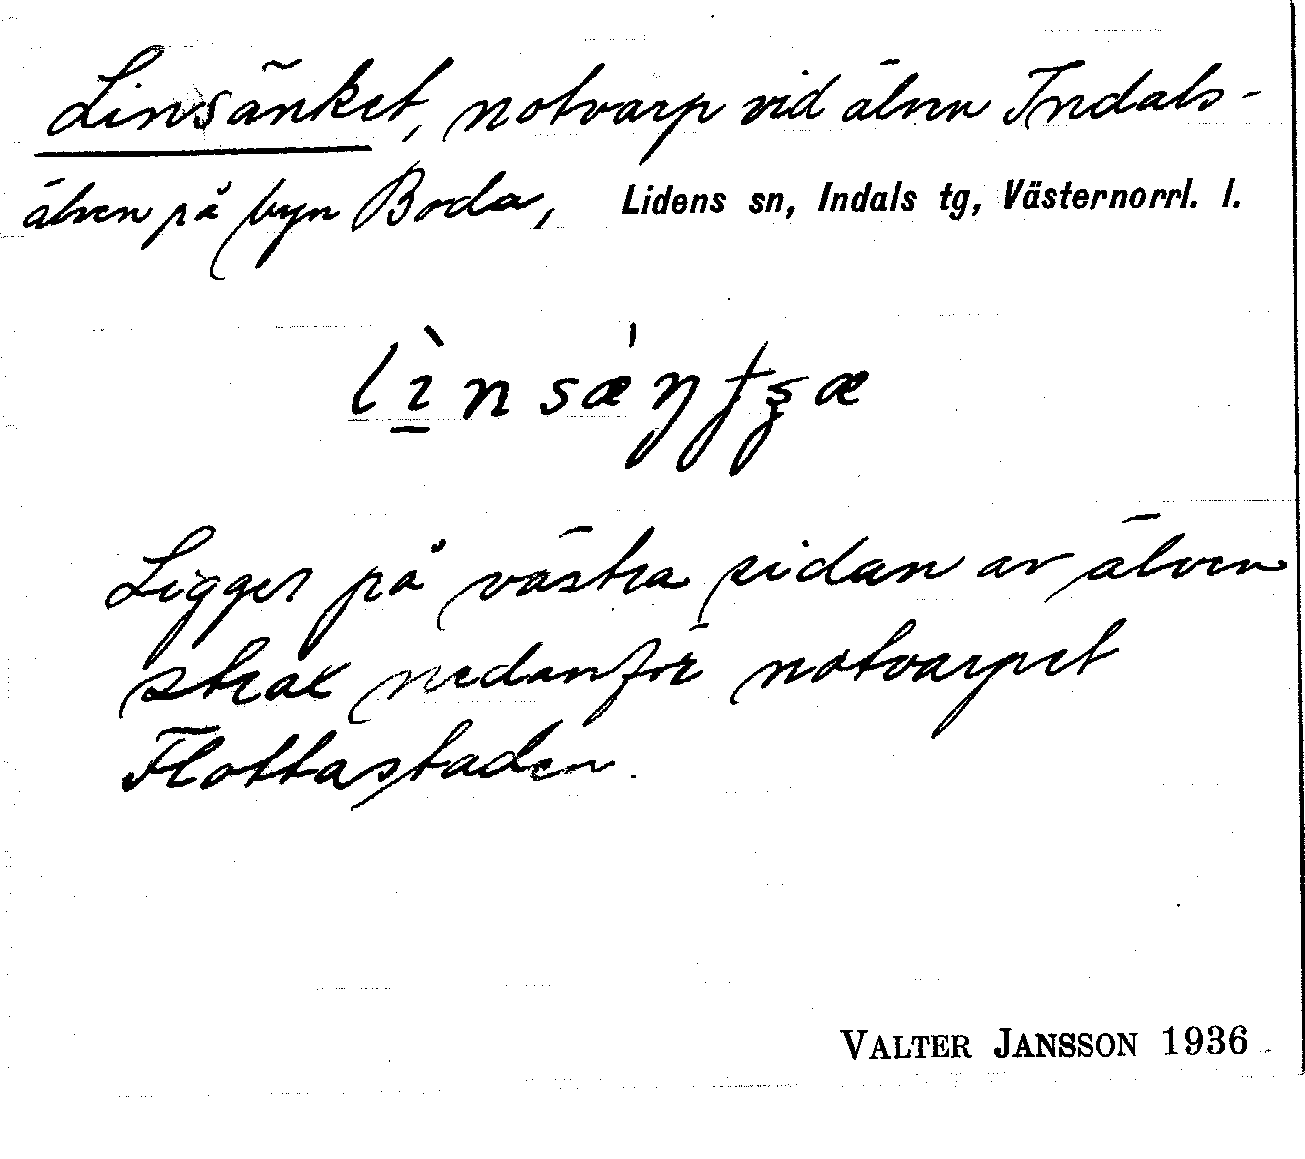 Linsänket, notvarp vid älven Indals-
älven på byn Boda, Lidens sn, Indals tg, Västernorrl. l.
lìnsæ̍ŋtʂæ
Ligger på västra sidan av älven
strax nedanför notvarpet
Flottastaden.
VALTER JANSSON 1936